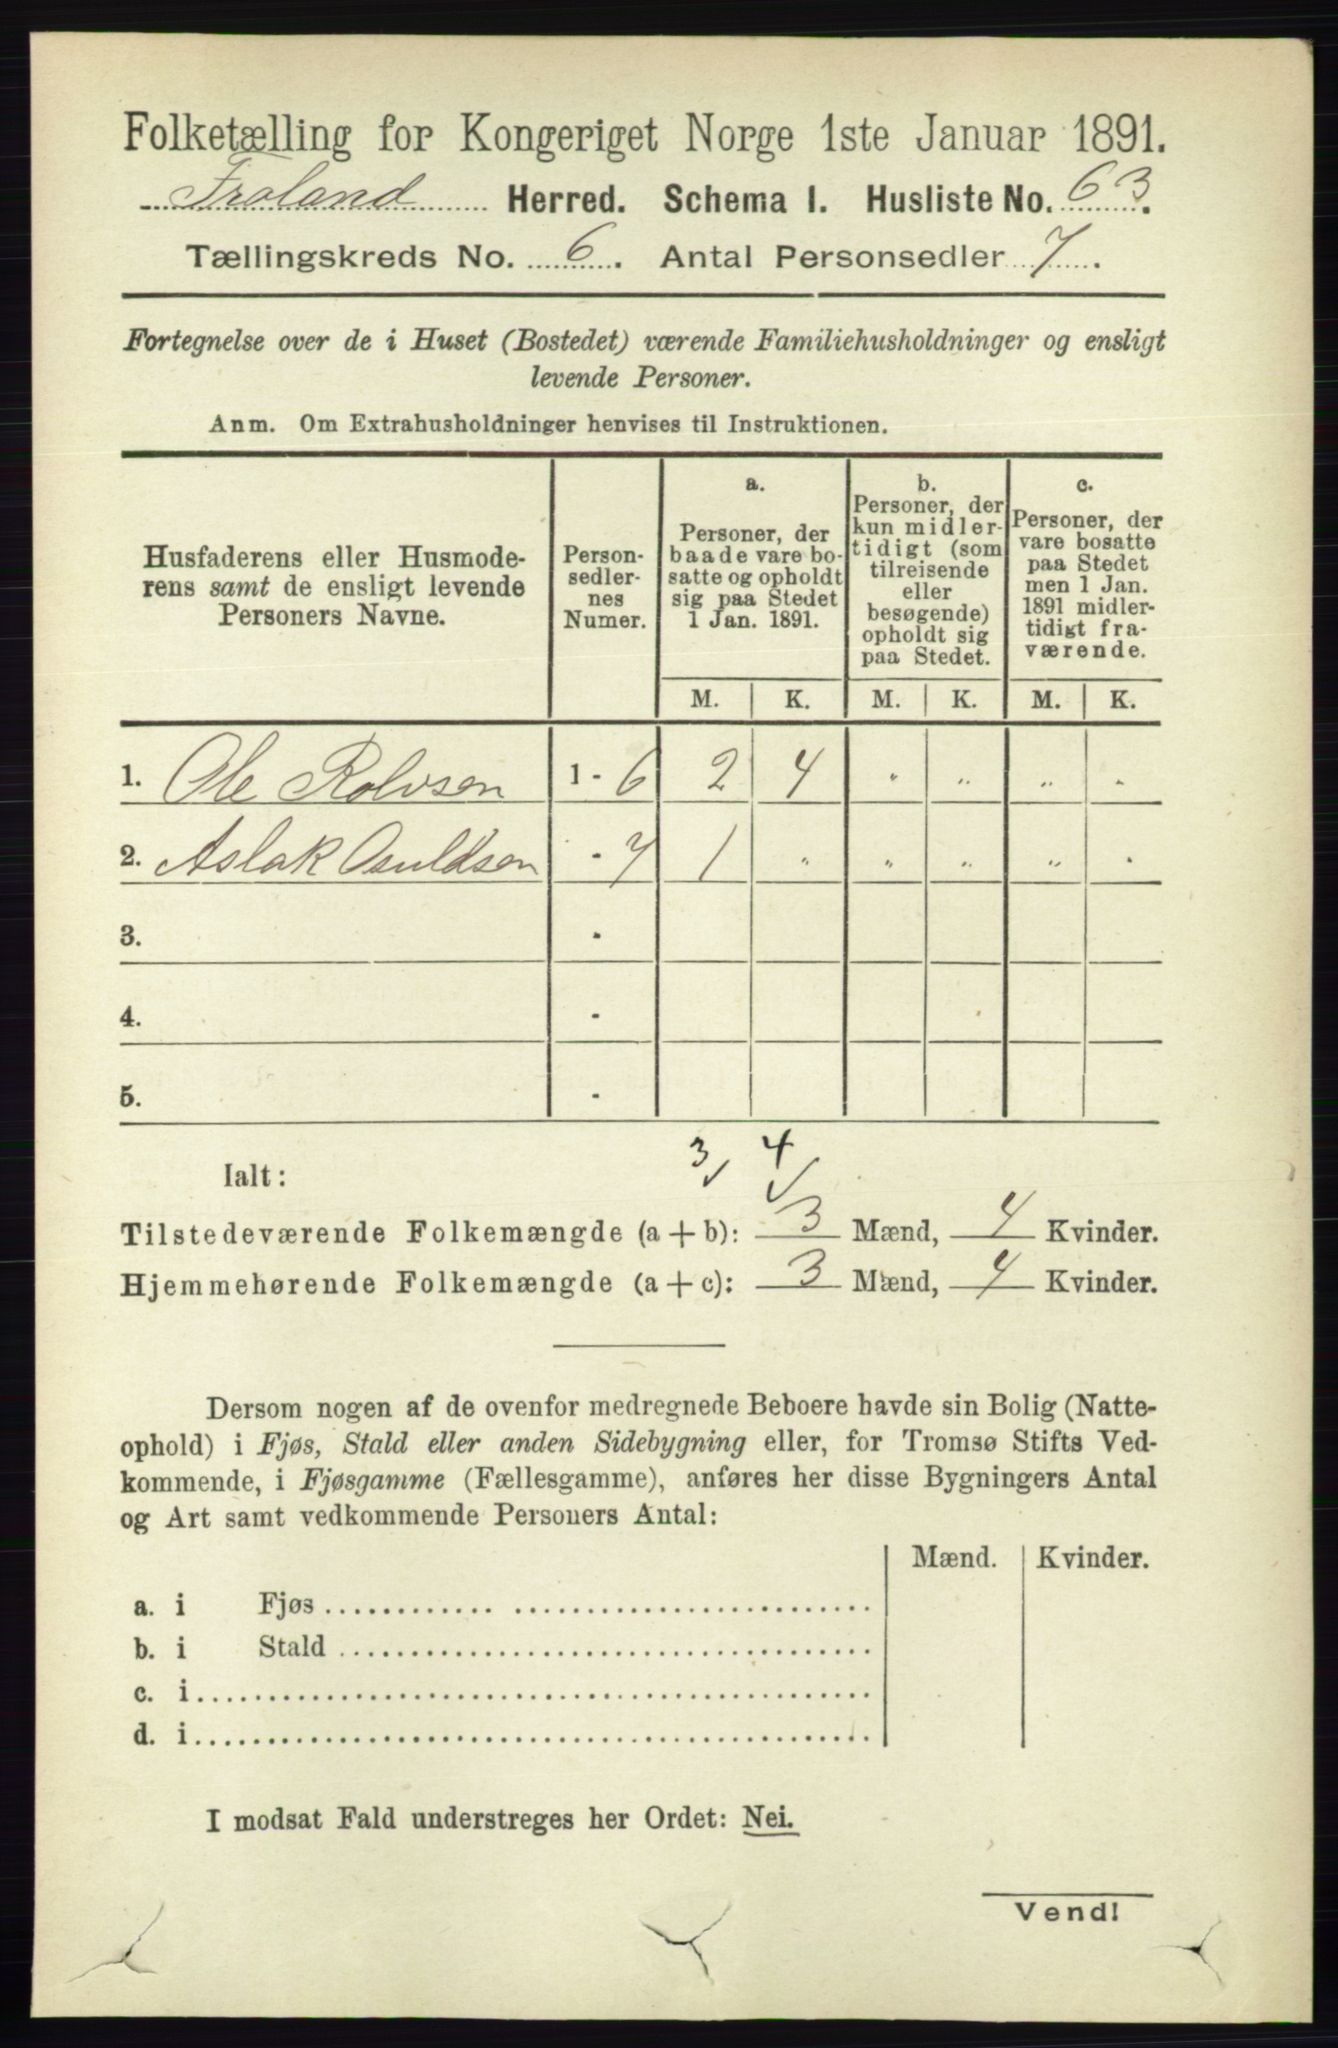 Folketælling for Kongeriget Norge 1ste Januar 1891.
Froland Herred. Schema I. Husliste No. 63.
Tællingskreds No. 6. Antal Personsedler 7.
Fortegnelse over de i Huset (Bostedet) værende Familiehusholdninger og ensligt
levende Personer.
Anm. Om Extrahusholdninger henvises til Instruktionen.
Husfaderens eller Husmode-
rens samt de ensligt levende
Personers Navne.
Person-
sedler-
nes
Numer.
a.
Personer, der
baade vare bo-
satte og opholdt
sig paa Stedet
1 Jan. 1891.
b.
Personer, der
kun midler-
tidigt (som
tilreisende
eller
besøgende)
opholdt sig
paa Stedet.
c.
Personer, der
vare bosatte
paa Stedet
men 1 Jan.
1891 midler-
tidigt fra-
værende.
M. K. M. K. M. K.
1. Ole Rolvsen 1 - 6 2 4 " " " "
2. Aslak Osuldsen - 7 1 " " " " "
3. -
4. -
5. -
3 4
Ialt:
Tilstedeværende Folkemængde (a + b): 3 Mænd, 4 Kvinder.
Hjemmehørende Folkemængde (a + c): 3 Mænd, 4 Kvinder.
Dersom nogen af de ovenfor medregnede Beboere havde sin Bolig (Natte-
ophold) i Fjøs, Stald eller anden Sidebygning eller, for Tromsø Stifts Ved-
kommende, i Fjøsgamme (Fællesgamme), anføres her disse Bygningers Antal
og Art samt vedkommende Personers Antal:
Mænd. Kvinder.
a. i Fjøs
b. i Stald
c. i
d. i
I modsat Fald understreges her Ordet: Nei.
Vend!